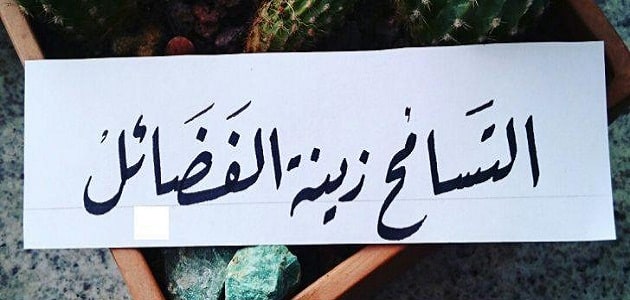 التَسامُح زينة الفَضَائلُ